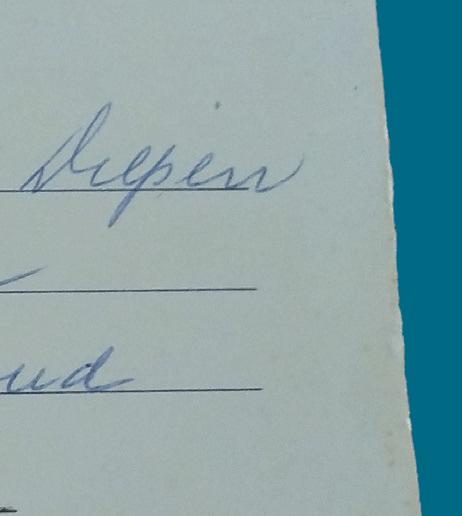 Diepen
ud